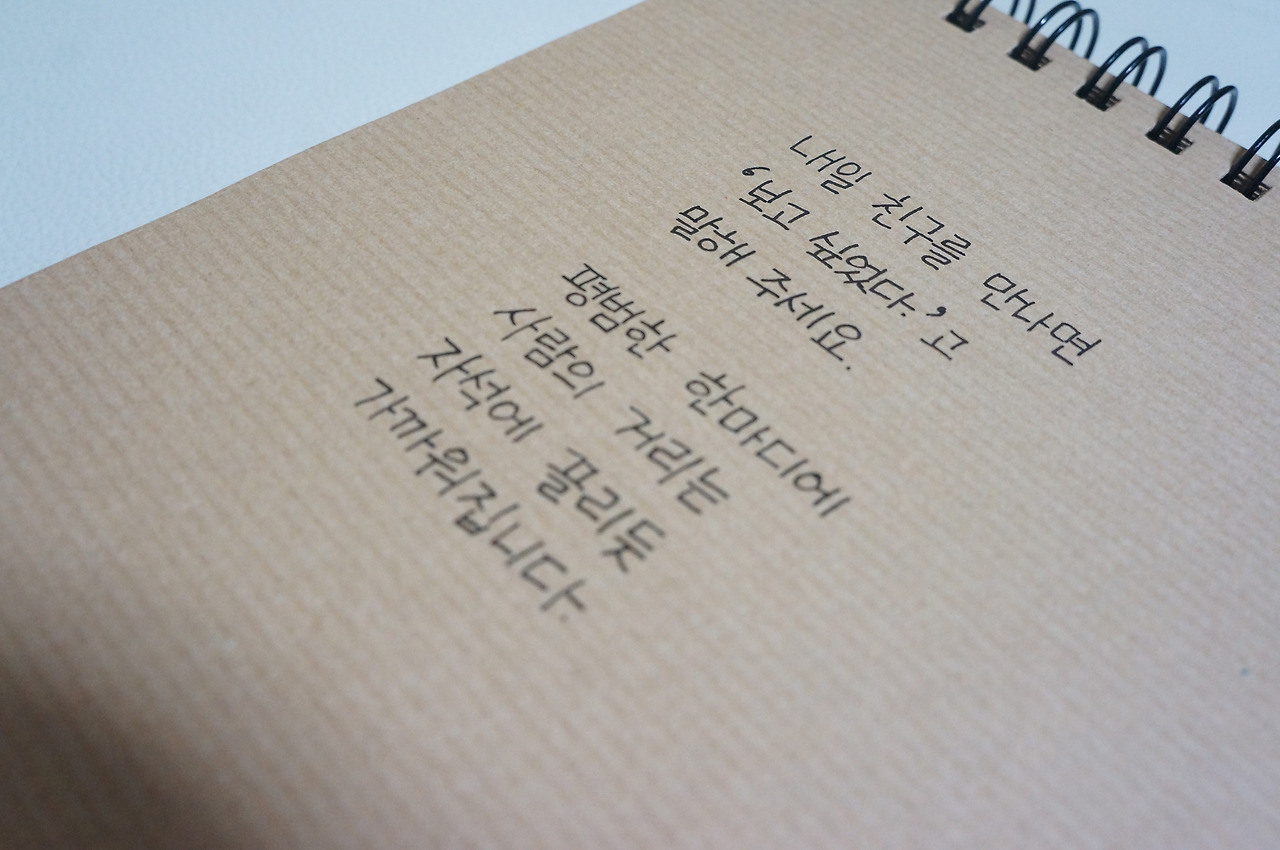 내일 친구를 만나면
'보고 싶었다.'고
말해 주세요.
평범한 한마디에
사람의 거리는
자석에 끌리듯
가까워집니다.